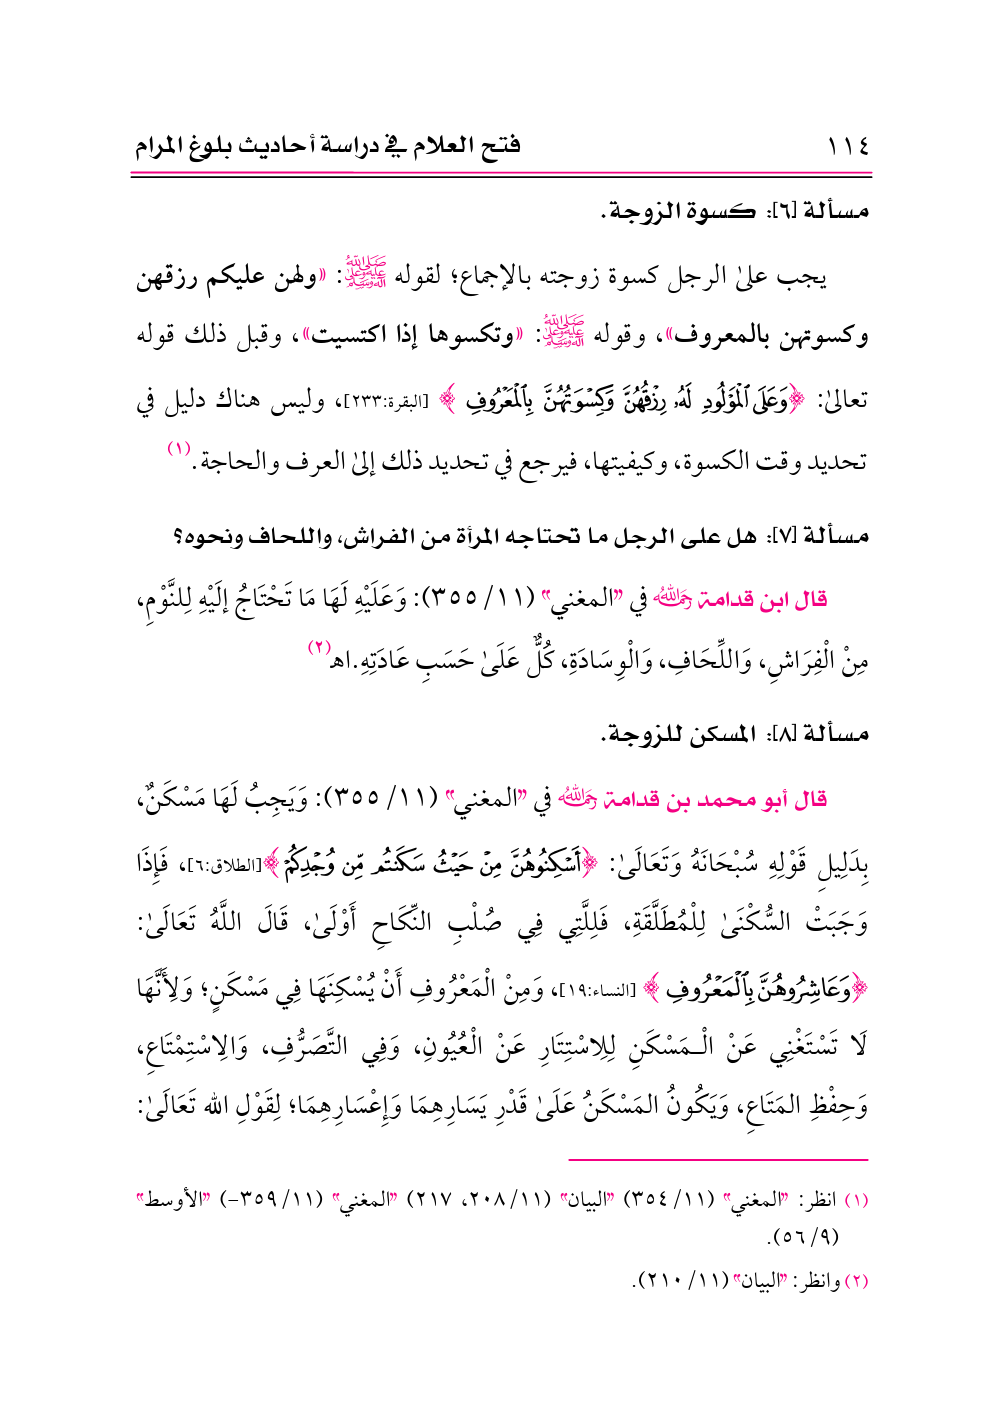 ١١٤ فتح العلام في دراسة أحاديث بلوغ المرام
مسألة [٦]: كسوة الزوجة.
يجب علىٰ الرجل كسوة زوجته بالإجماع؛ لقوله ﷺ: «ولهن عليكم رزقهن
وكسوتهن بالمعروف»، وقوله ﷺ: «وتكسوها إذا اكتسيت»، وقبل ذلك قوله
تعالىٰ: ﴿وَعَلَى ٱلْمَوْلُودِ لَهُۥ رِزْقُهُنَّ وَكِسْوَتُهُنَّ بِٱلْمَعْرُوفِ﴾ [البقرة:٢٣٣]، وليس هناك دليل في
تحديد وقت الكسوة، وكيفيتها، فيرجع في تحديد ذلك إلىٰ العرف والحاجة.(١)
مسألة [٧]: هل على الرجل ما تحتاجه المرأة من الفراش، واللحاف ونحوه؟
قال ابن قدامة رحمه الله في "المغني" (١١/ ٣٥٥): وَعَلَيْهِ لَهَا مَا تَحْتَاجُ إلَيْهِ لِلنَّوْمِ،
مِنْ الْفِرَاشِ، وَاللِّحَافِ، وَالْوِسَادَةِ، كُلٌّ عَلَىٰ حَسَبِ عَادَتِهِ.اهـ(٢)
مسألة [٨]: المسكن للزوجة.
قال أبو محمد بن قدامة رحمه الله في "المغني" (١١/ ٣٥٥): وَيَجِبُ لَهَا مَسْكَنٌ،
بِدَلِيلِ قَوْلِهِ سُبْحَانَهُ وَتَعَالَىٰ: ﴿أَسْكِنُوهُنَّ مِنْ حَيْثُ سَكَنتُم مِّن وُجْدِكُمْ﴾[الطلاق:٦]، فَإِذَا
وَجَبَتْ السُّكْنَىٰ لِلْمُطَلَّقَةِ، فَلِلَّتِي فِي صُلْبِ النِّكَاحِ أَوْلَىٰ، قَالَ اللَّهُ تَعَالَىٰ:
﴿وَعَاشِرُوهُنَّ بِٱلْمَعْرُوفِ﴾ [النساء:١٩]، وَمِنْ الْمَعْرُوفِ أَنْ يُسْكِنَهَا فِي مَسْكَنٍ؛ وَلِأَنَّهَا
لَا تَسْتَغْنِي عَنْ الْـمَسْكَنِ لِلِاسْتِتَارِ عَنْ الْعُيُونِ، وَفِي التَّصَرُّفِ، وَالِاسْتِمْتَاعِ،
وَحِفْظِ المَتَاعِ، وَيَكُونُ المَسْكَنُ عَلَىٰ قَدْرِ يَسَارِهِمَا وَإِعْسَارِهِمَا؛ لِقَوْلِ الله تَعَالَىٰ:
(١) انظر: "المغني" (١١/ ٣٥٤) "البيان" (١١/ ٢٠٨، ٢١٧) "المغني" (١١/ ٣٥٩-) "الأوسط"
(٩/ ٥٦).
(٢) وانظر: "البيان" (١١/ ٢١٠).